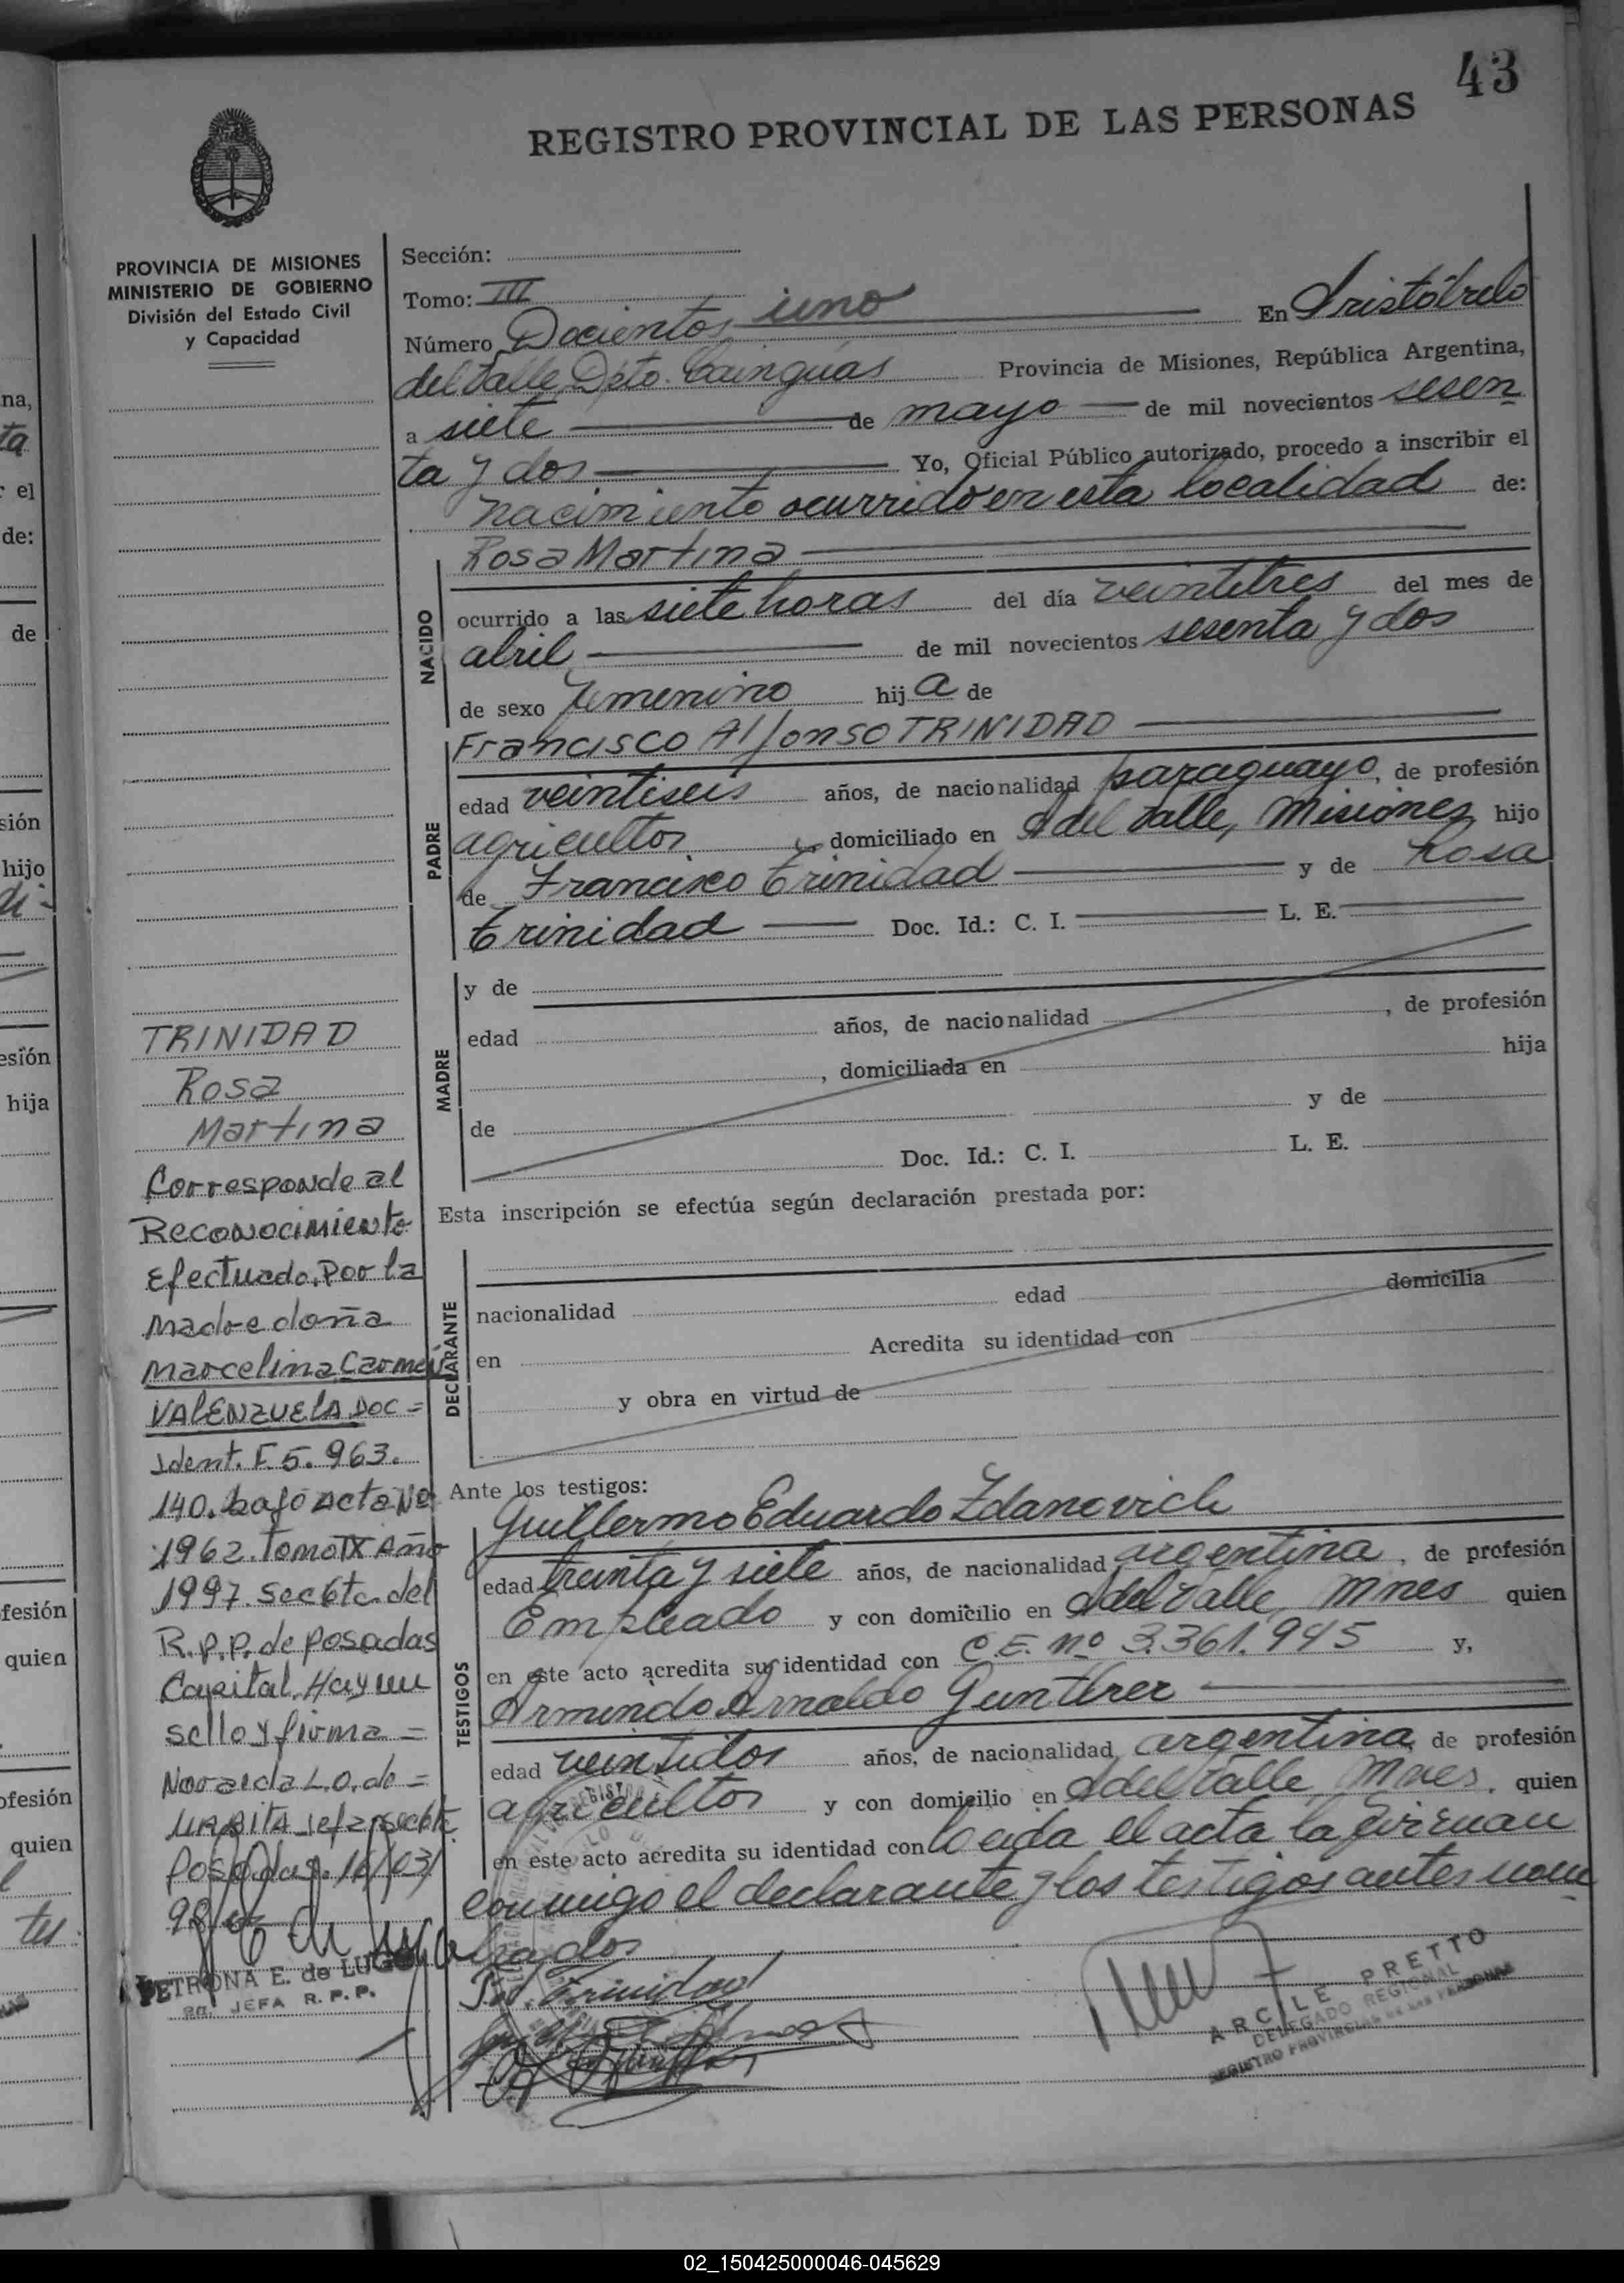 43
REGISTRO PROVINCIAL DE LAS PERSONAS
PROVINCIA DE MISIONES
MINISTERIO DE GOBIERNO
División del Estado Civil
y Capacidad
Sección:
Tomo: III
Número Docientos uno En Aristóbulo
del Valle, Dpto. Cainguas Provincia de Misiones, República Argentina,
a siete de mayo de mil novecientos sesen
ta y dos Yo, Oficial Público autorizado, procedo a inscribir el
nacimiento ocurrido en esta localidad de:
NACIDO
Rosa Martina
ocurrido a las siete horas del día veintitres del mes de
abril de mil novecientos sesenta y dos
de sexo femenino hija de
PADRE
Francisco Alfonso TRINIDAD
edad veintiseis años, de nacionalidad paraguayo, de profesión
agricultor, domiciliado en A del Valle, Misiones hijo
de Francisco Trinidad y de Rosa
Trinidad Doc. Id.: C. I. L. E.
MADRE
y de
edad años, de nacionalidad , de profesión
, domiciliada en hija
de y de
Doc. Id.: C. I. L. E.
Esta inscripción se efectúa según declaración prestada por:
DECLARANTE
nacionalidad edad domicilia
en Acredita su identidad con
y obra en virtud de
Ante los testigos:
TESTIGOS
Guillermo Eduardo Zdanovich
edad treinta y siete años, de nacionalidad argentina, de profesión
Empleado y con domicilio en A del Valle, Mnes quien
en este acto acredita su identidad con C.E. nº 3.361.945 y,
Armindo Arnaldo Gunther
edad veintidos años, de nacionalidad argentina, de profesión
agricultor y con domicilio en A del Valle, Mnes. quien
en este acto acredita su identidad con Leida el acta la firman
conmigo el declarante y los testigos antes nom
brados
Trinidad
ARCILE PRETTO
DELEGADO REGIONAL
REGISTRO PROVINCIAL DE LAS PERSONAS
TRINIDAD
Rosa
Martina
Corresponde al
Reconocimiento
Efectuado. Por la
Madre doña
Marcelina Carmen
VALENZUELA DOC =
Ident. F. 5. 963.
140. bajo Acta Nº
1962. Tomo IX Año
1997. Sec 6ta. del
R.P.P. de Posadas
Capital. Hay un
sello y firma =
L.O. de =
Jefa sec 6ta
Posadas. 16/03/
98
PETRONA E. de LUGO
JEFA R. P. P.
na,
ta
r el
de:
de
sión
hijo
esión
hija
fesión
quien
ofesión
quien
02_150425000046-045629